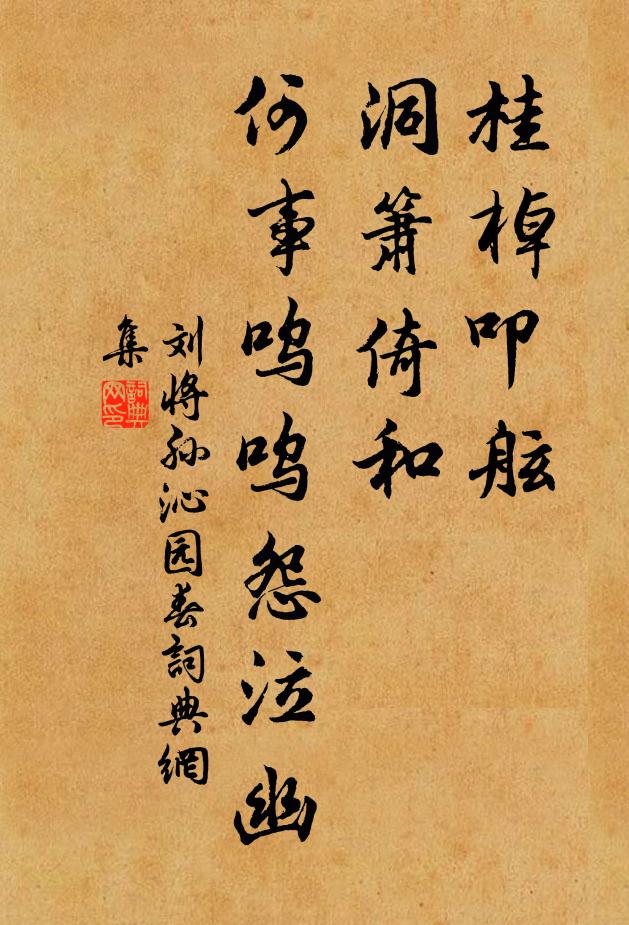 桂棹叩舷
洞箫倚和
何事呜呜怨泣幽
刘将孙沁园春詞典網
集
詞典
网印